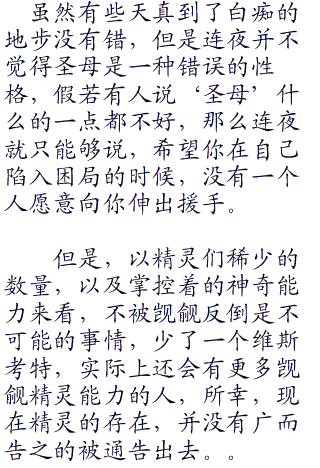 虽然有些天真到了白痴的
地步没有错，但是连夜并不
觉得圣母是一种错误的性
格，假若有人说‘圣母’什
么的一点都不好，那么连夜
就只能够说，希望你在自己
陷入困局的时候，没有一个
人愿意向你伸出援手。
但是，以精灵们稀少的
数量，以及掌控着的神奇能
力来看，不被觊觎反倒是不
可能的事情，少了一个维斯
考特，实际上还会有更多觊
觎精灵能力的人，所幸，现
在精灵的存在，并没有广而
告之的被通告出去。。